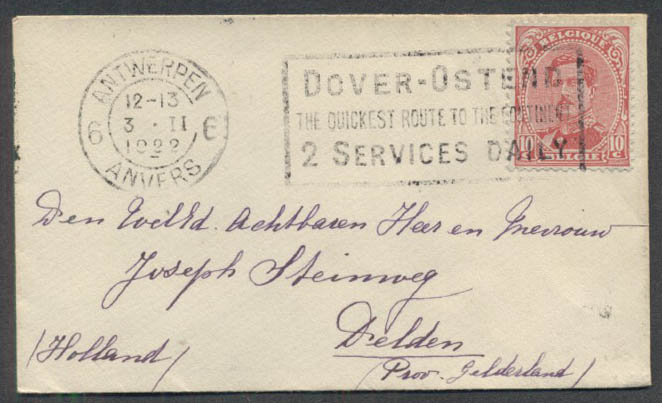 ANTWERPEN
12-13
3 · II
1922
6 6
ANVERS
DOVER-OSTEND
THE QUICKEST ROUTE TO THE CONTINENT
2 SERVICES DAILY
BELGIQUE
10 10
BELGIË
Den WelEd. Achtbaren Heer en Mevrouw
Joseph Steinweg
Delden
(Prov. Gelderland)
(Holland)